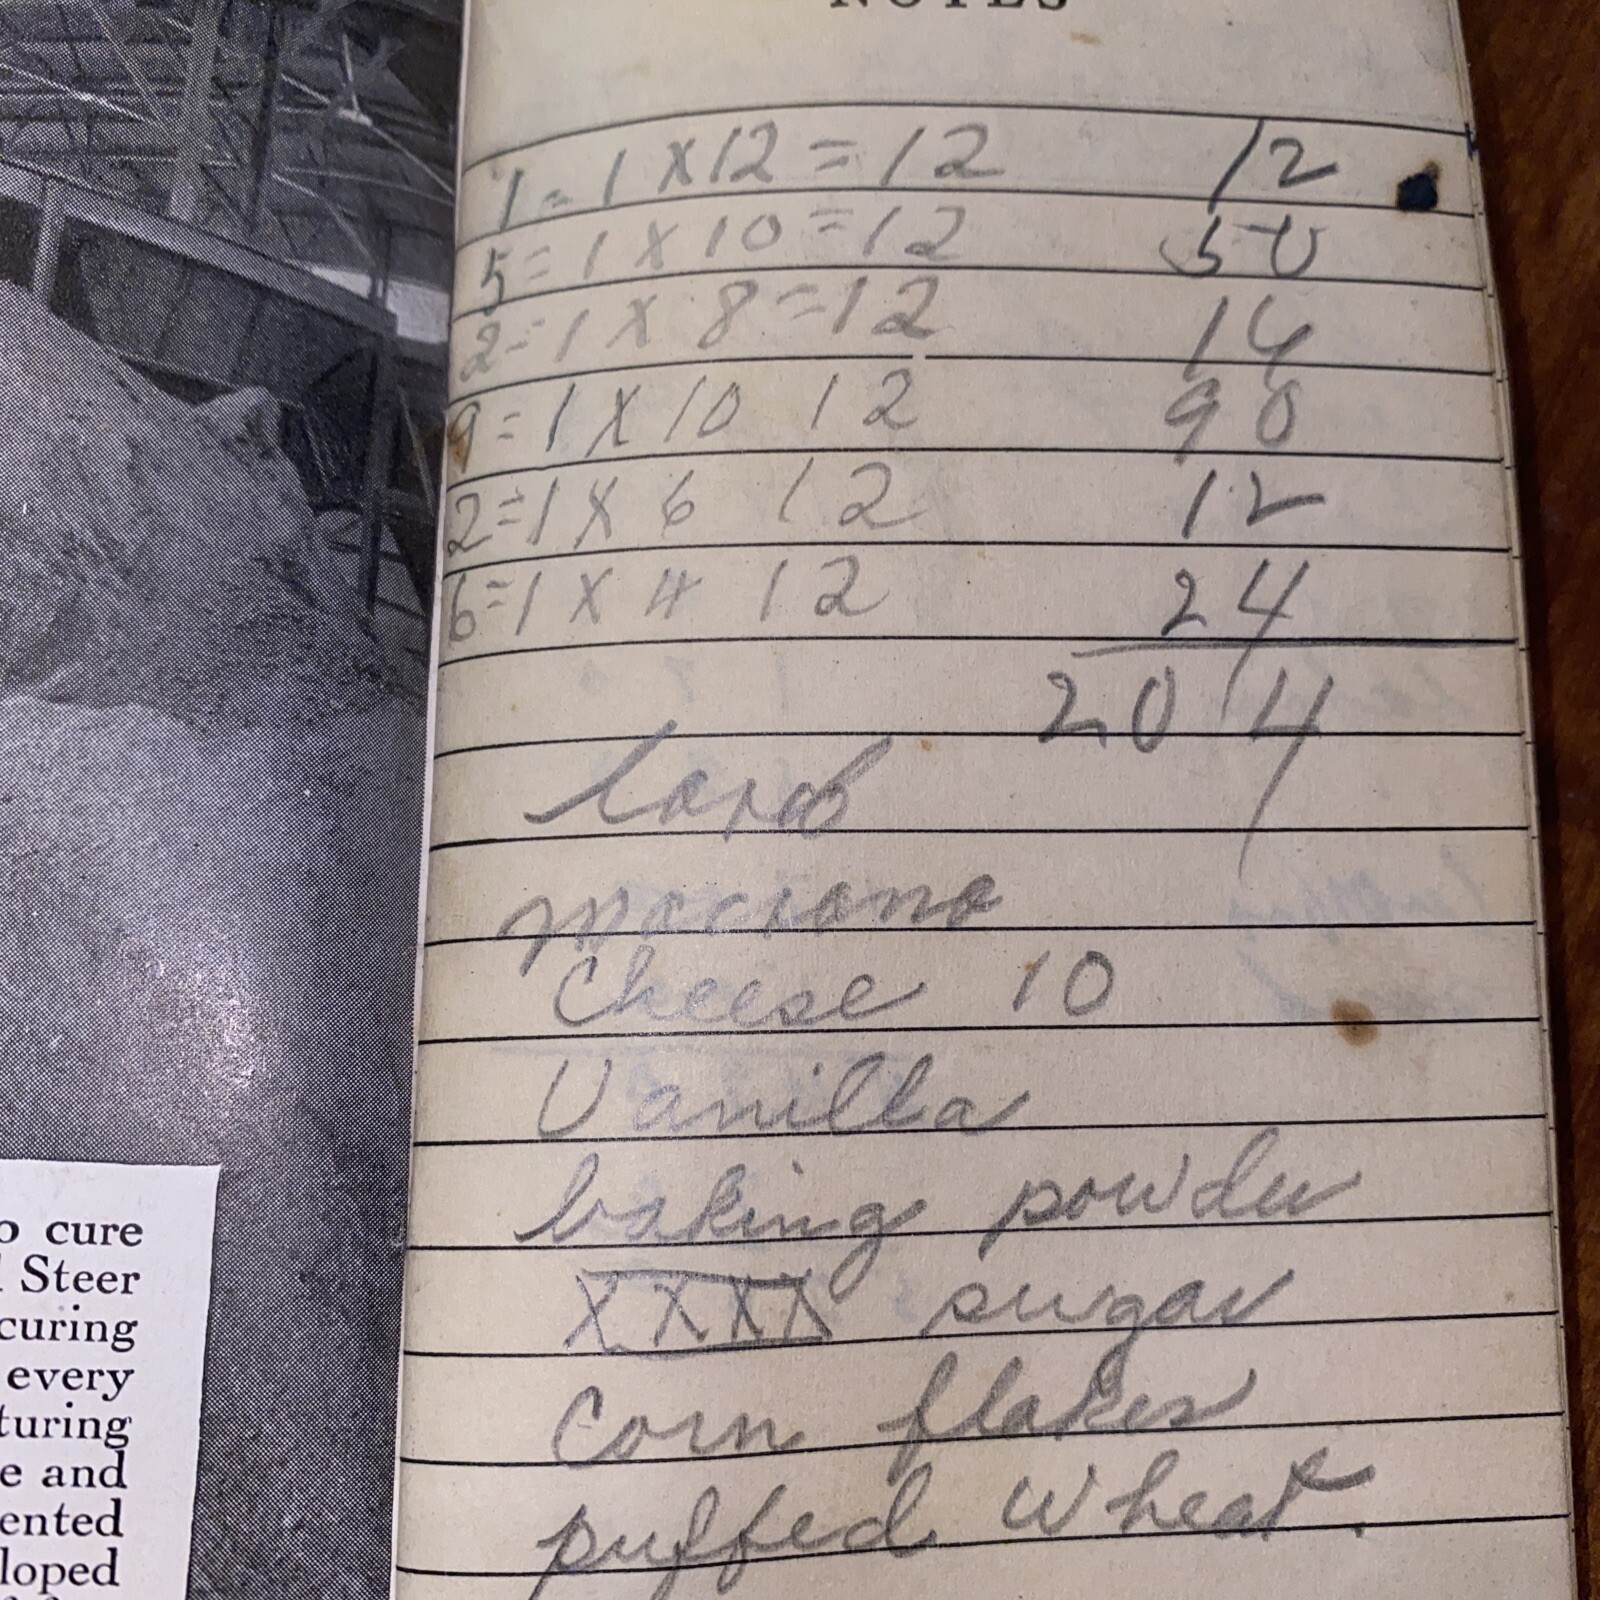 NOTES
1 = 1 X 12 = 12 12
5 = 1 X 10 = 12 50
2 = 1 X 8 = 12 16
9 = 1 X 10 12 90
2 = 1 X 6 12 12
6 = 1 X 4 12 24
204
lard
Cheese 10
Vanilla
baking powder
XXXX sugar
Corn flakes
puffed wheat.
o cure
Steer
curing
every
turing
e and
ented
loped